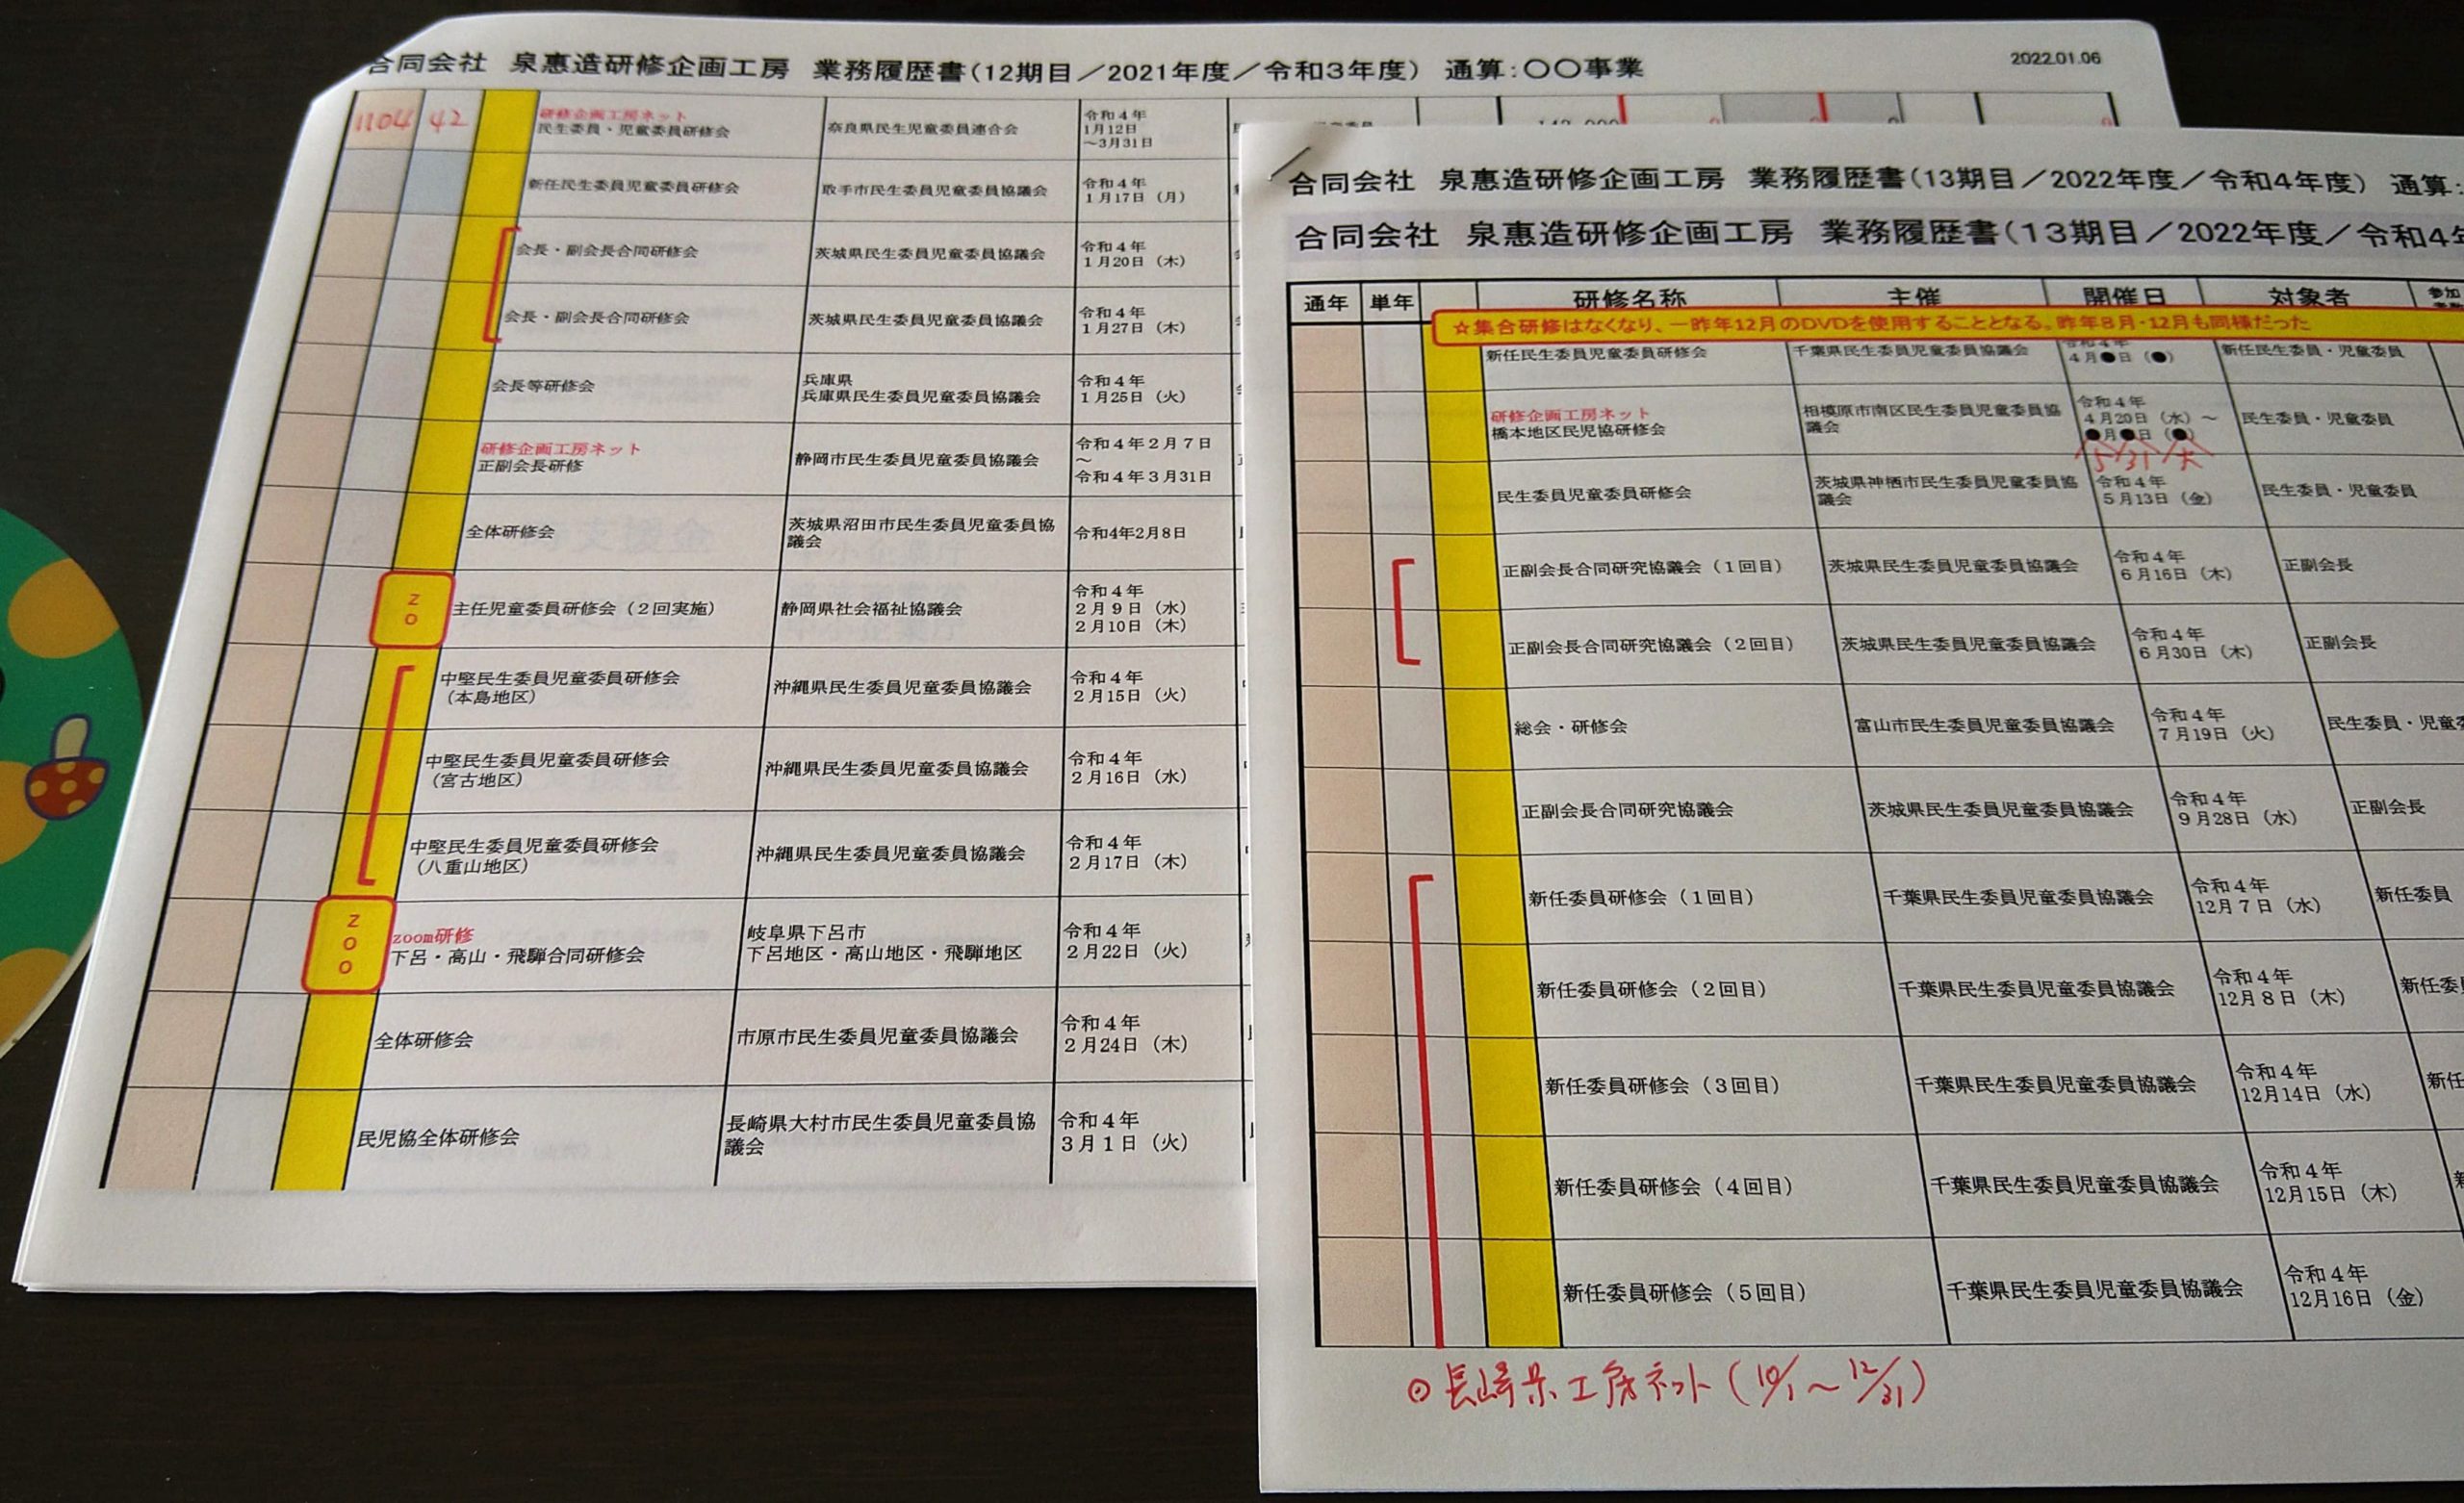 合同会社 泉惠造研修企画工房 業務履歴書(12期目／2021年度／令和3年度) 通算:〇〇事業
2022.01.06
1104 42
研修企画工房ネット
民生委員・児童委員研修会
奈良県民生児童委員連合会
令和４年
1月12日
～3月31日
新任民生委員児童委員研修会
取手市民生委員児童委員協議会
令和４年
１月17日（月）
会長・副会長合同研修会
茨城県民生委員児童委員協議会
令和４年
１月20日（木）
会長・副会長合同研修会
茨城県民生委員児童委員協議会
令和４年
１月27日（木）
会長等研修会
兵庫県
兵庫県民生委員児童委員協議会
令和４年
１月25日（火）
研修企画工房ネット
正副会長研修
静岡市民生委員児童委員協議会
令和４年２月７日
～
令和４年３月31日
全体研修会
茨城県沼田市民生委員児童委員協
議会
令和4年2月8日
ZO
主任児童委員研修会（２回実施）
静岡県社会福祉協議会
令和４年
２月９日（水）
２月10日（木）
中堅民生委員児童委員研修会
（本島地区）
沖縄県民生委員児童委員協議会
令和４年
２月15日（火）
中堅民生委員児童委員研修会
（宮古地区）
沖縄県民生委員児童委員協議会
令和４年
２月16日（水）
中堅民生委員児童委員研修会
（八重山地区）
沖縄県民生委員児童委員協議会
令和４年
２月17日（木）
ZOO
zoom研修
下呂・高山・飛騨合同研修会
岐阜県下呂市
下呂地区・高山地区・飛騨地区
令和４年
２月22日（火）
全体研修会
市原市民生委員児童委員協議会
令和４年
２月24日（木）
民児協全体研修会
長崎県大村市民生委員児童委員協
議会
令和４年
３月１日（火）
合同会社 泉惠造研修企画工房 業務履歴書(13期目／2022年度／令和4年度) 通算:
合同会社 泉惠造研修企画工房 業務履歴書(13期目／2022年度／令和4年
通年 単年 研修名称 主催 開催日 対象者 参加
☆集合研修はなくなり、一昨年12月のDVDを使用することとなる。昨年8月・12月も同様だった
新任民生委員児童委員研修会
千葉県民生委員児童委員協議会
令和４年
４月●日（●）
新任民生委員・児童委員
研修企画工房ネット
橋本地区民児協研修会
相模原市南区民生委員児童委員協
議会
令和４年
４月20日（水）～
●月●日（●）
5/31 火
民生委員・児童委員
民生委員児童委員研修会
茨城県神栖市民生委員児童委員協
議会
令和４年
５月13日（金）
民生委員・児童委員
正副会長合同研究協議会（１回目）
茨城県民生委員児童委員協議会
令和４年
６月16日（木）
正副会長
正副会長合同研究協議会（２回目）
茨城県民生委員児童委員協議会
令和４年
６月30日（木）
正副会長
総会・研修会
富山市民生委員児童委員協議会
令和４年
７月19日（火）
民生委員・児童委
正副会長合同研究協議会
茨城県民生委員児童委員協議会
令和４年
９月28日（水）
正副会長
新任委員研修会（１回目）
千葉県民生委員児童委員協議会
令和４年
12月７日（水）
新任委員
新任委員研修会（２回目）
千葉県民生委員児童委員協議会
令和４年
12月８日（木）
新任委員
新任委員研修会（３回目）
千葉県民生委員児童委員協議会
令和４年
12月14日（水）
新任
新任委員研修会（４回目）
千葉県民生委員児童委員協議会
令和４年
12月15日（木）
新任委員研修会（５回目）
千葉県民生委員児童委員協議会
令和４年
12月16日（金）
⊙長崎県工房ネット（10/1～12/31）